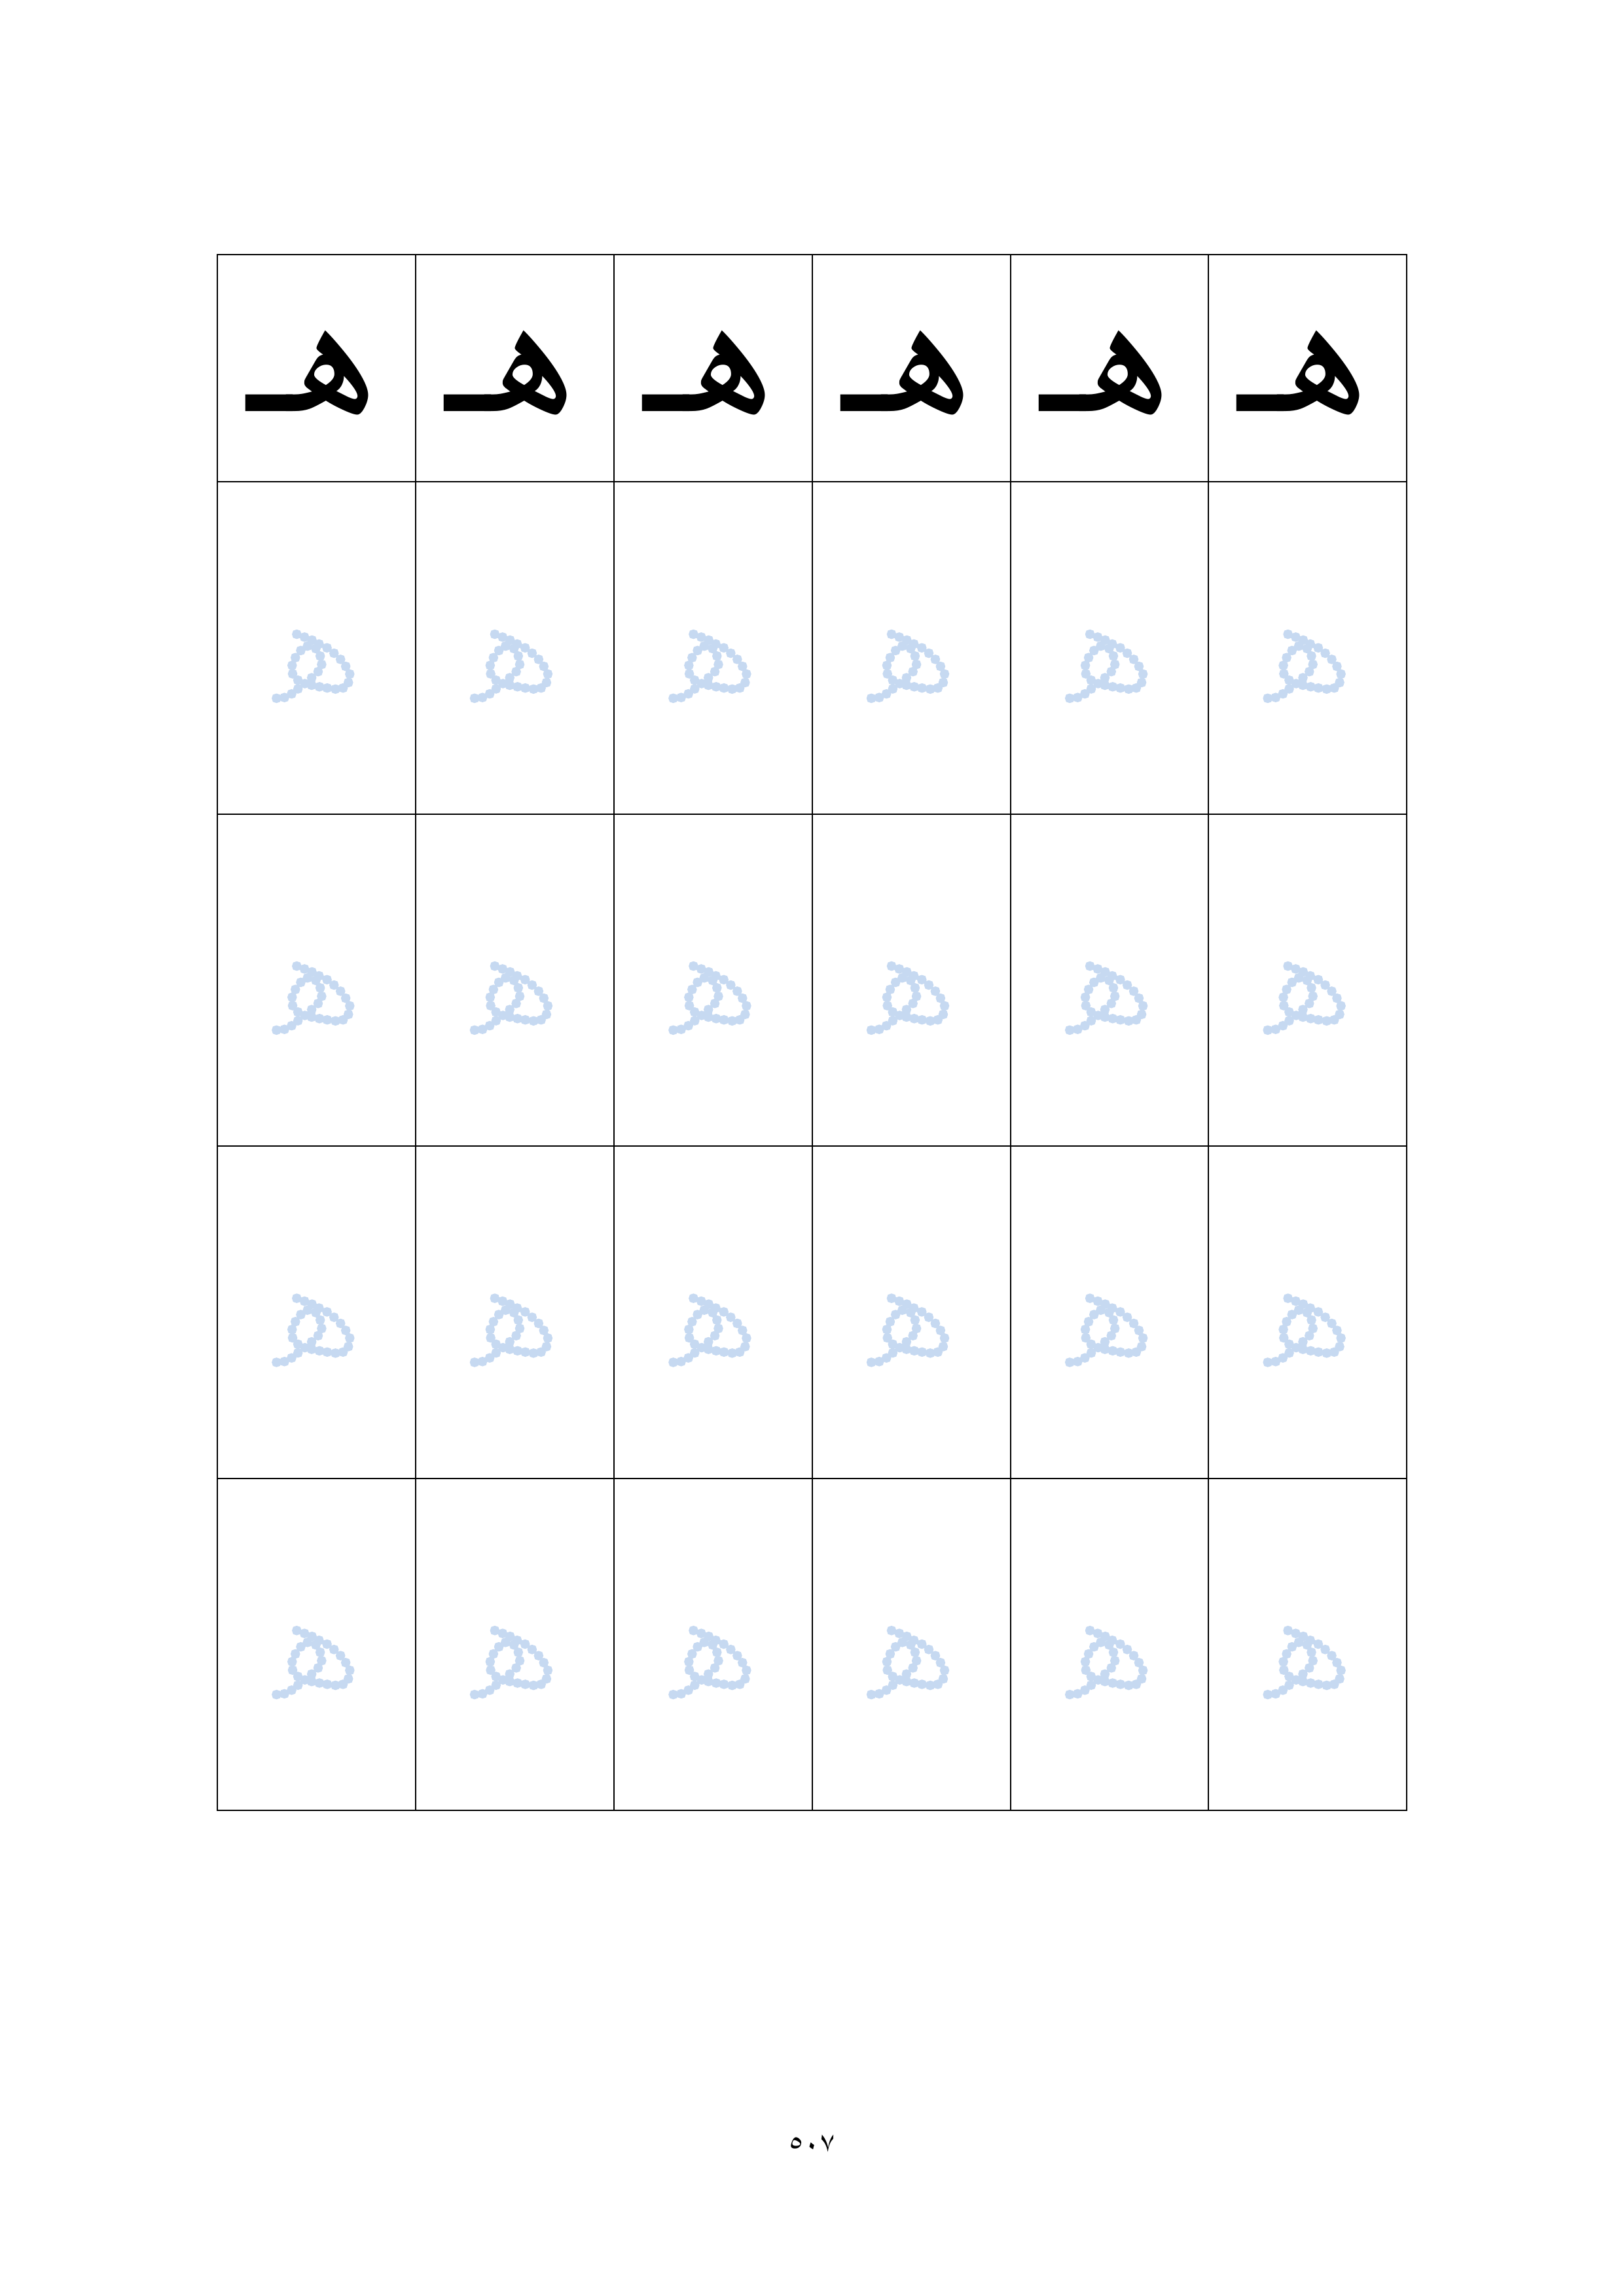 هـ هـ هـ هـ هـ هـ
هـ هـ هـ هـ هـ هـ
هـ هـ هـ هـ هـ هـ
هـ هـ هـ هـ هـ هـ
هـ هـ هـ هـ هـ هـ
٥٠٧